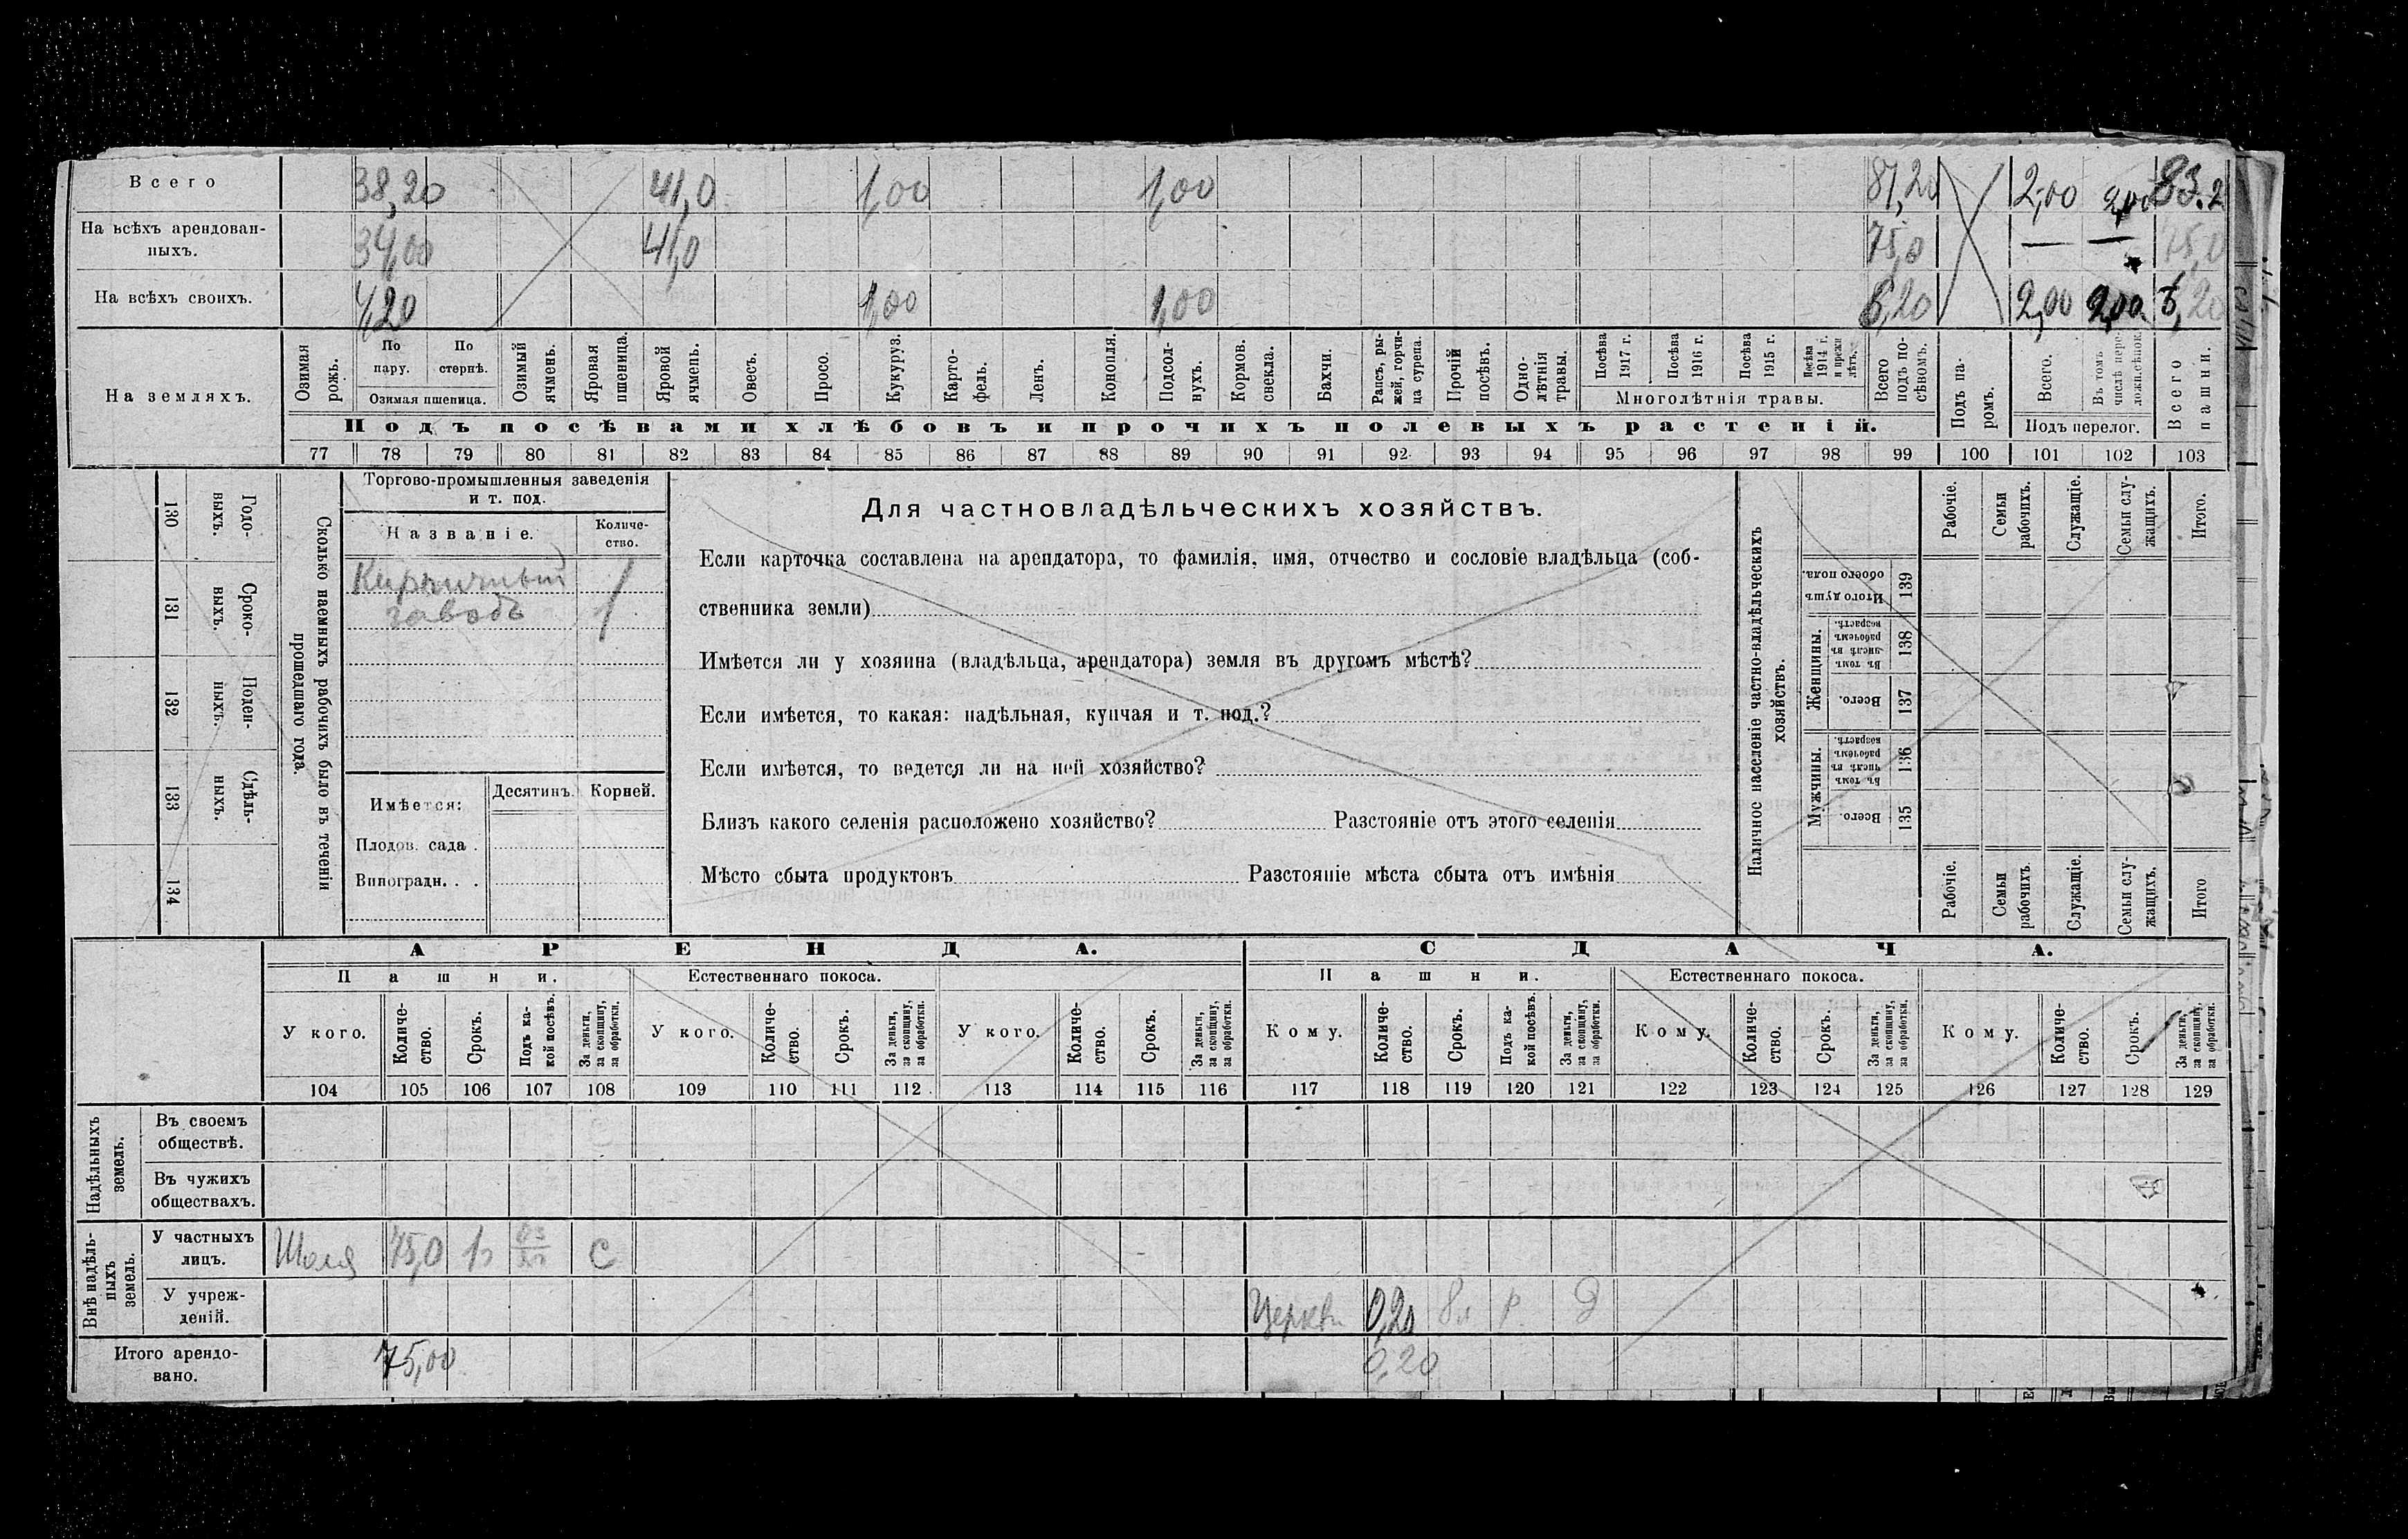 Всего 38,20 41,0 1,00 1,00 81,20 2,00 2,00 83.2
На всѣхъ арендован-
ныхъ. 34,00 41,0 75,0 — — 75,0
На всѣхъ своихъ. 4,20 1,00 1,00 6,20 2,00 2,00
На земляхъ.
Озимая рожь.
По пару.
По стернѣ.
Озимая пшеница.
Озимый ячмень.
Яровая пшеница.
Яровой ячмень.
Овесъ.
Просо.
Кукуруз.
Карто-
фель.
Ленъ.
Конопля.
Подсол-
нухъ.
Кормов.
свекла.
Бахчи.
Рапсъ, ры-
жей, горчи-
ца сурепа.
Прочій
посѣвъ.
Одно-
лѣтнія
травы.
Посѣва
1917 г.
Посѣва
1916 г.
Посѣва
1915 г.
Посѣва
1914 г.
и прежн
лѣтъ.
Многолѣтнія травы.
Всего
подъ по-
сѣвомъ.
Подъ па-
ромъ.
Всего.
Въ томъ
числѣ пере-
ложн.сѣнок.
Подъ перелог.
Всего
пашни.
Подъ посѣвами хлѣбовъ и прочихъ полевыхъ растеній.
77 78 79 80 81 82 83 84 85 86 87 88 89 90 91 92 93 94 95 96 97 98 99 100 101 102 103
130 Годо-
выхъ.
131 Сроко-
выхъ.
132 Поден-
ныхъ.
133 Сдѣль-
ныхъ.
134
Сколько наемныхъ рабочихъ было въ теченіи
прошедшаго года.
Торгово-промышленныя заведенія
и т. под.
Названіе.
Количе-
ство.
Кирпичный
заводъ 1
Имѣется:
Десятинъ.
Корней.
Плодов. сада .
Виноградн. . .
Для частновладѣльческихъ хозяйствъ.
Если карточка составлена на арендатора, то фамилія, имя, отчество и сословіе владѣльца (соб-
ственника земли)
Имѣется ли у хозяина (владѣльца, арендатора) земля въ другомъ мѣстѣ?
Если имѣется, то какая: надѣльная, купчая и т. под.?
Если имѣется, то ведется ли на ней хозяйство?
Близъ какого селенія расположено хозяйство? Разстояніе отъ этого селенія
Мѣсто сбыта продуктовъ Разстояніе мѣста сбыта отъ имѣнія
Наличное населеніе частно-владѣльческихъ
хозяйствъ.
Рабочіе.
Семьи
рабочихъ.
Служащіе.
Семьи слу-
жащихъ.
Итого.
Итого душ
обоего пола.
139
Женщины.
Въ томъ
числѣ въ
рабочемъ
возрастѣ.
138
Всего.
137
Мужчины.
Въ томъ
числѣ въ
рабочемъ
возрастѣ.
136
Всего.
135
Рабочіе.
Семьи
рабочихъ.
Служащіе.
Семьи слу-
жащихъ.
Итого
АРЕНДА.
СДАЧА.
Пашни.
Естественнаго покоса.
Пашни.
Естественнаго покоса.
У кого.
Количе-
ство.
Срокъ.
Подъ ка-
кой посѣвъ.
За деньги,
за скопщину,
за обработки.
У кого.
Количе-
ство.
Срокъ.
За деньги,
за скопщину,
за обработки.
У кого.
Количе-
ство.
Срокъ.
За деньги,
за скопщину,
за обработки.
Кому.
Количе-
ство.
Срокъ.
Подъ ка-
кой посѣвъ.
За деньги,
за скопщину,
за обработки.
Кому.
Количе-
ство.
Срокъ.
За деньги,
за скопщину,
за обработки.
Кому.
Количе-
ство.
Срокъ.
За деньги,
за скопщину,
за обработки.
104 105 106 107 108 109 110 111 112 113 114 115 116 117 118 119 120 121 122 123 124 125 126 127 128 129
Надѣльныхъ
земель.
Въ своемъ
обществѣ.
Въ чужихъ
обществахъ.
Внѣ надѣль-
ныхъ
земель.
У частныхъ
лицъ. 75,0 1г С
У учреж-
деній. Церкви 0,20 8л Р. Д
Итого арендо-
вано. 75,00 0,20